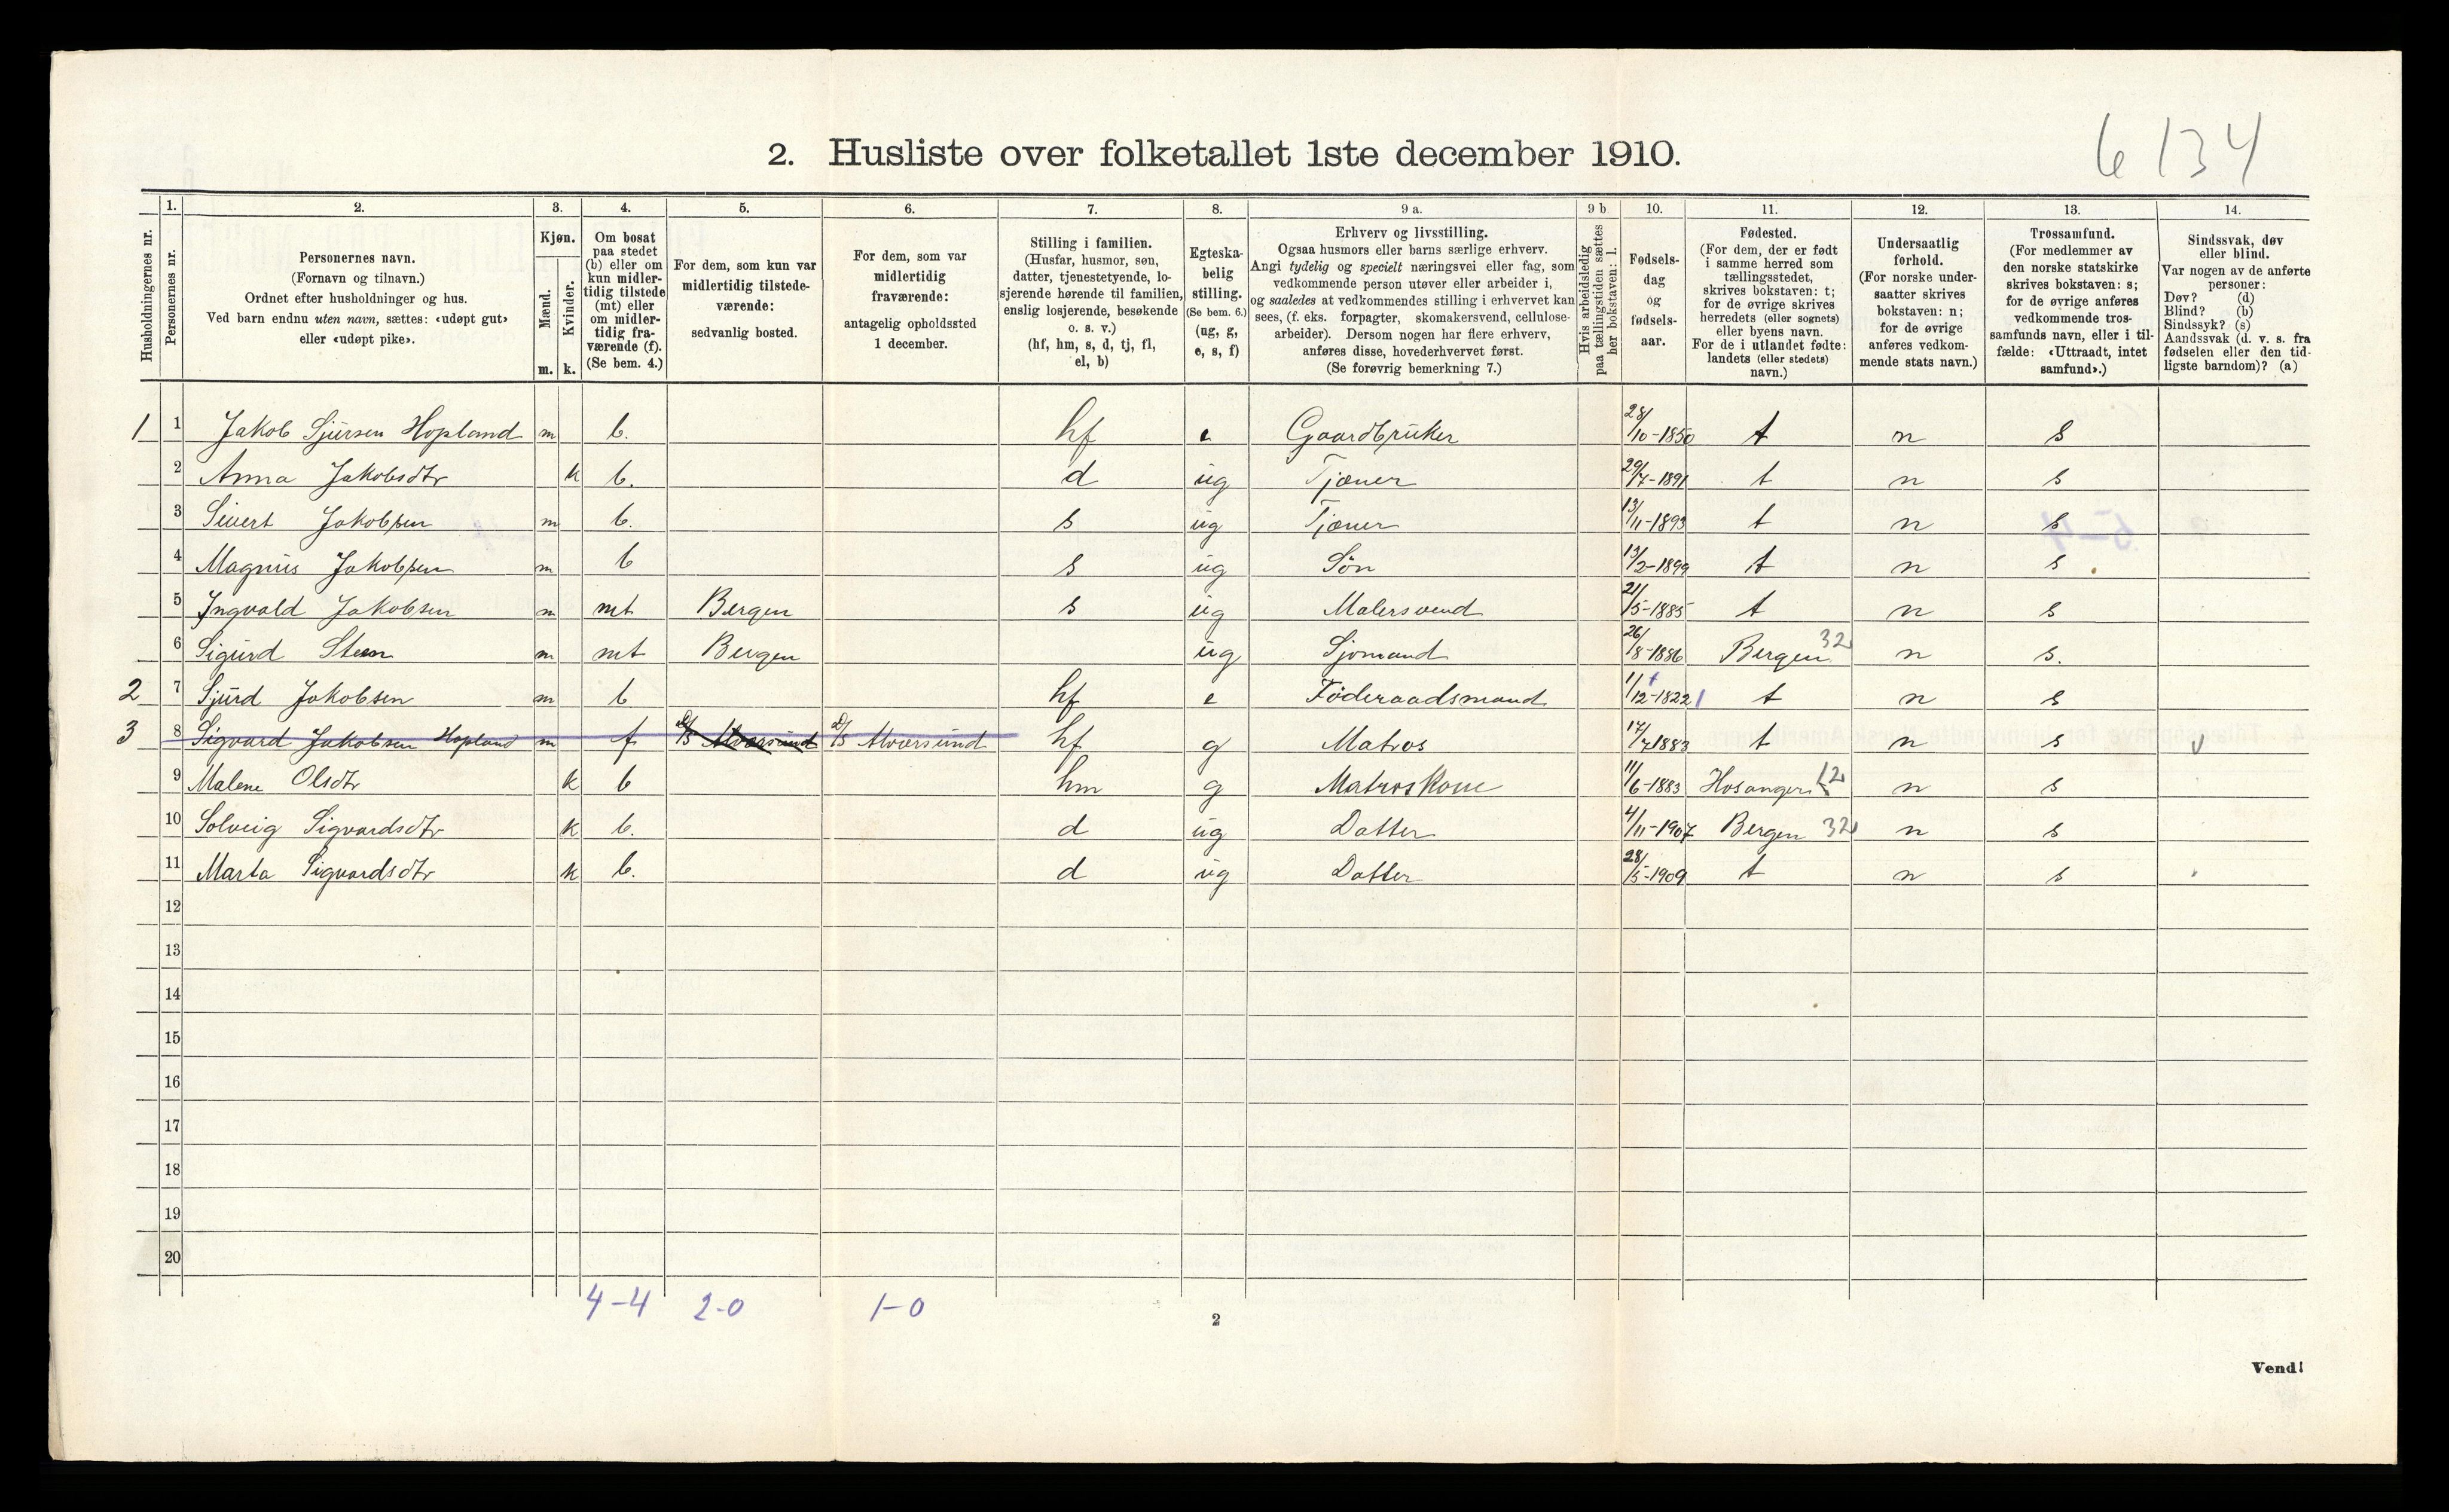 6 134
2. Husliste over folketallet 1ste december 1910.
Husholdningernes nr.
1. Personernes nr.
2. Personernes navn.
(Fornavn og tilnavn.)
Ordnet efter husholdninger og hus.
Ved barn endnu uten navn, sættes: «udøpt gut»
eller «udøpt pike».
3. Kjøn.
Mænd. m.
Kvinder. k.
4. Om bosat
paa stedet
(b) eller om
kun midler-
tidig tilstede
(mt) eller
om midler-
tidig fra-
værende (f).
(Se bem. 4.)
5. For dem, som kun var
midlertidig tilstede-
værende:
sedvanlig bosted.
6. For dem, som var
midlertidig
fraværende:
antagelig opholdssted
1 december.
7. Stilling i familien.
(Husfar, husmor, søn,
datter, tjenestetyende, lo-
sjerende hørende til familien,
enslig losjerende, besøkende
o. s. v.)
(hf, hm, s, d, tj, fl,
el, b)
8. Egteska-
belig
stilling.
(Se bem. 6.)
(ug, g,
e, s, f)
9 a. Erhverv og livsstilling.
Ogsaa husmors eller barns særlige erhverv.
Angi tydelig og specielt næringsvei eller fag, som
vedkommende person utøver eller arbeider i,
og saaledes at vedkommendes stilling i erhvervet kan
sees, (f. eks. forpagter, skomakersvend, cellulose-
arbeider). Dersom nogen har flere erhverv,
anføres disse, hovederhvervet først.
(Se forøvrig bemerkning 7.)
9 b Hvis arbeidsledig
paa tællingstiden sættes
her bokstaven: l.
10. Fødsels-
dag
og
fødsels-
aar.
11. Fødested.
(For dem, der er født
i samme herred som
tællingsstedet,
skrives bokstaven: t;
for de øvrige skrives
herredets (eller sognets)
eller byens navn.
For de i utlandet fødte:
landets (eller stedets)
navn.)
12. Undersaatlig
forhold.
(For norske under-
saatter skrives
bokstaven: n;
for de øvrige
anføres vedkom-
mende stats navn.)
13. Trossamfund.
(For medlemmer av
den norske statskirke
skrives bokstaven: s;
for de øvrige anføres
vedkommende tros-
samfunds navn, eller i til-
fælde: «Uttraadt, intet
samfund».)
14. Sindssvak, døv
eller blind.
Var nogen av de anførte
personer:
Døv? (d)
Blind? (b)
Sindssyk? (s)
Aandssvak (d. v. s. fra
fødselen eller den tid-
ligste barndom)? (a)
1 1 Jakob Sjursen Hopland m b. hf e Gaardbruker 28/10-1850 t n s
2 Anna Jakobsdtr k b. d ug Tjener 29/7-1891 t n s
3 Sivert Jakobsen m b. s ug Tjener 13/11-1893 t n s
4 Magnus Jakobsen m b s ug Søn 13/2-1899 t n s
5 Ingvald Jakobsen m mt Bergen s ug Malersvend 21/5-1885 t n s
6 Sigurd Steen m mt Bergen ug Sjømand 26/8-1886 Bergen 32 n s.
2 7 Sjurd Jakobsen m b hf e Føderaadsmand 1/12-1822 t n s
3 8 Sigvard Jakobsen Hopland m f D/S Alversund D/S Alversund hf g Matros 17/7 1883 t n s v
9 Malene Olsdtr k b hm g Matroskone 11/6-1883 Hosanger 12 n s
10 Solveig Sigvardsdtr k b. d ug Datter 4/11-1907 Bergen 32 n s
11 Marta Sigvardsdtr k b. d ug Datter 28/5-1909 t n s
12
13
14
15
16
17
18
19
20
4-4 2-0 1-0
2
Vend!